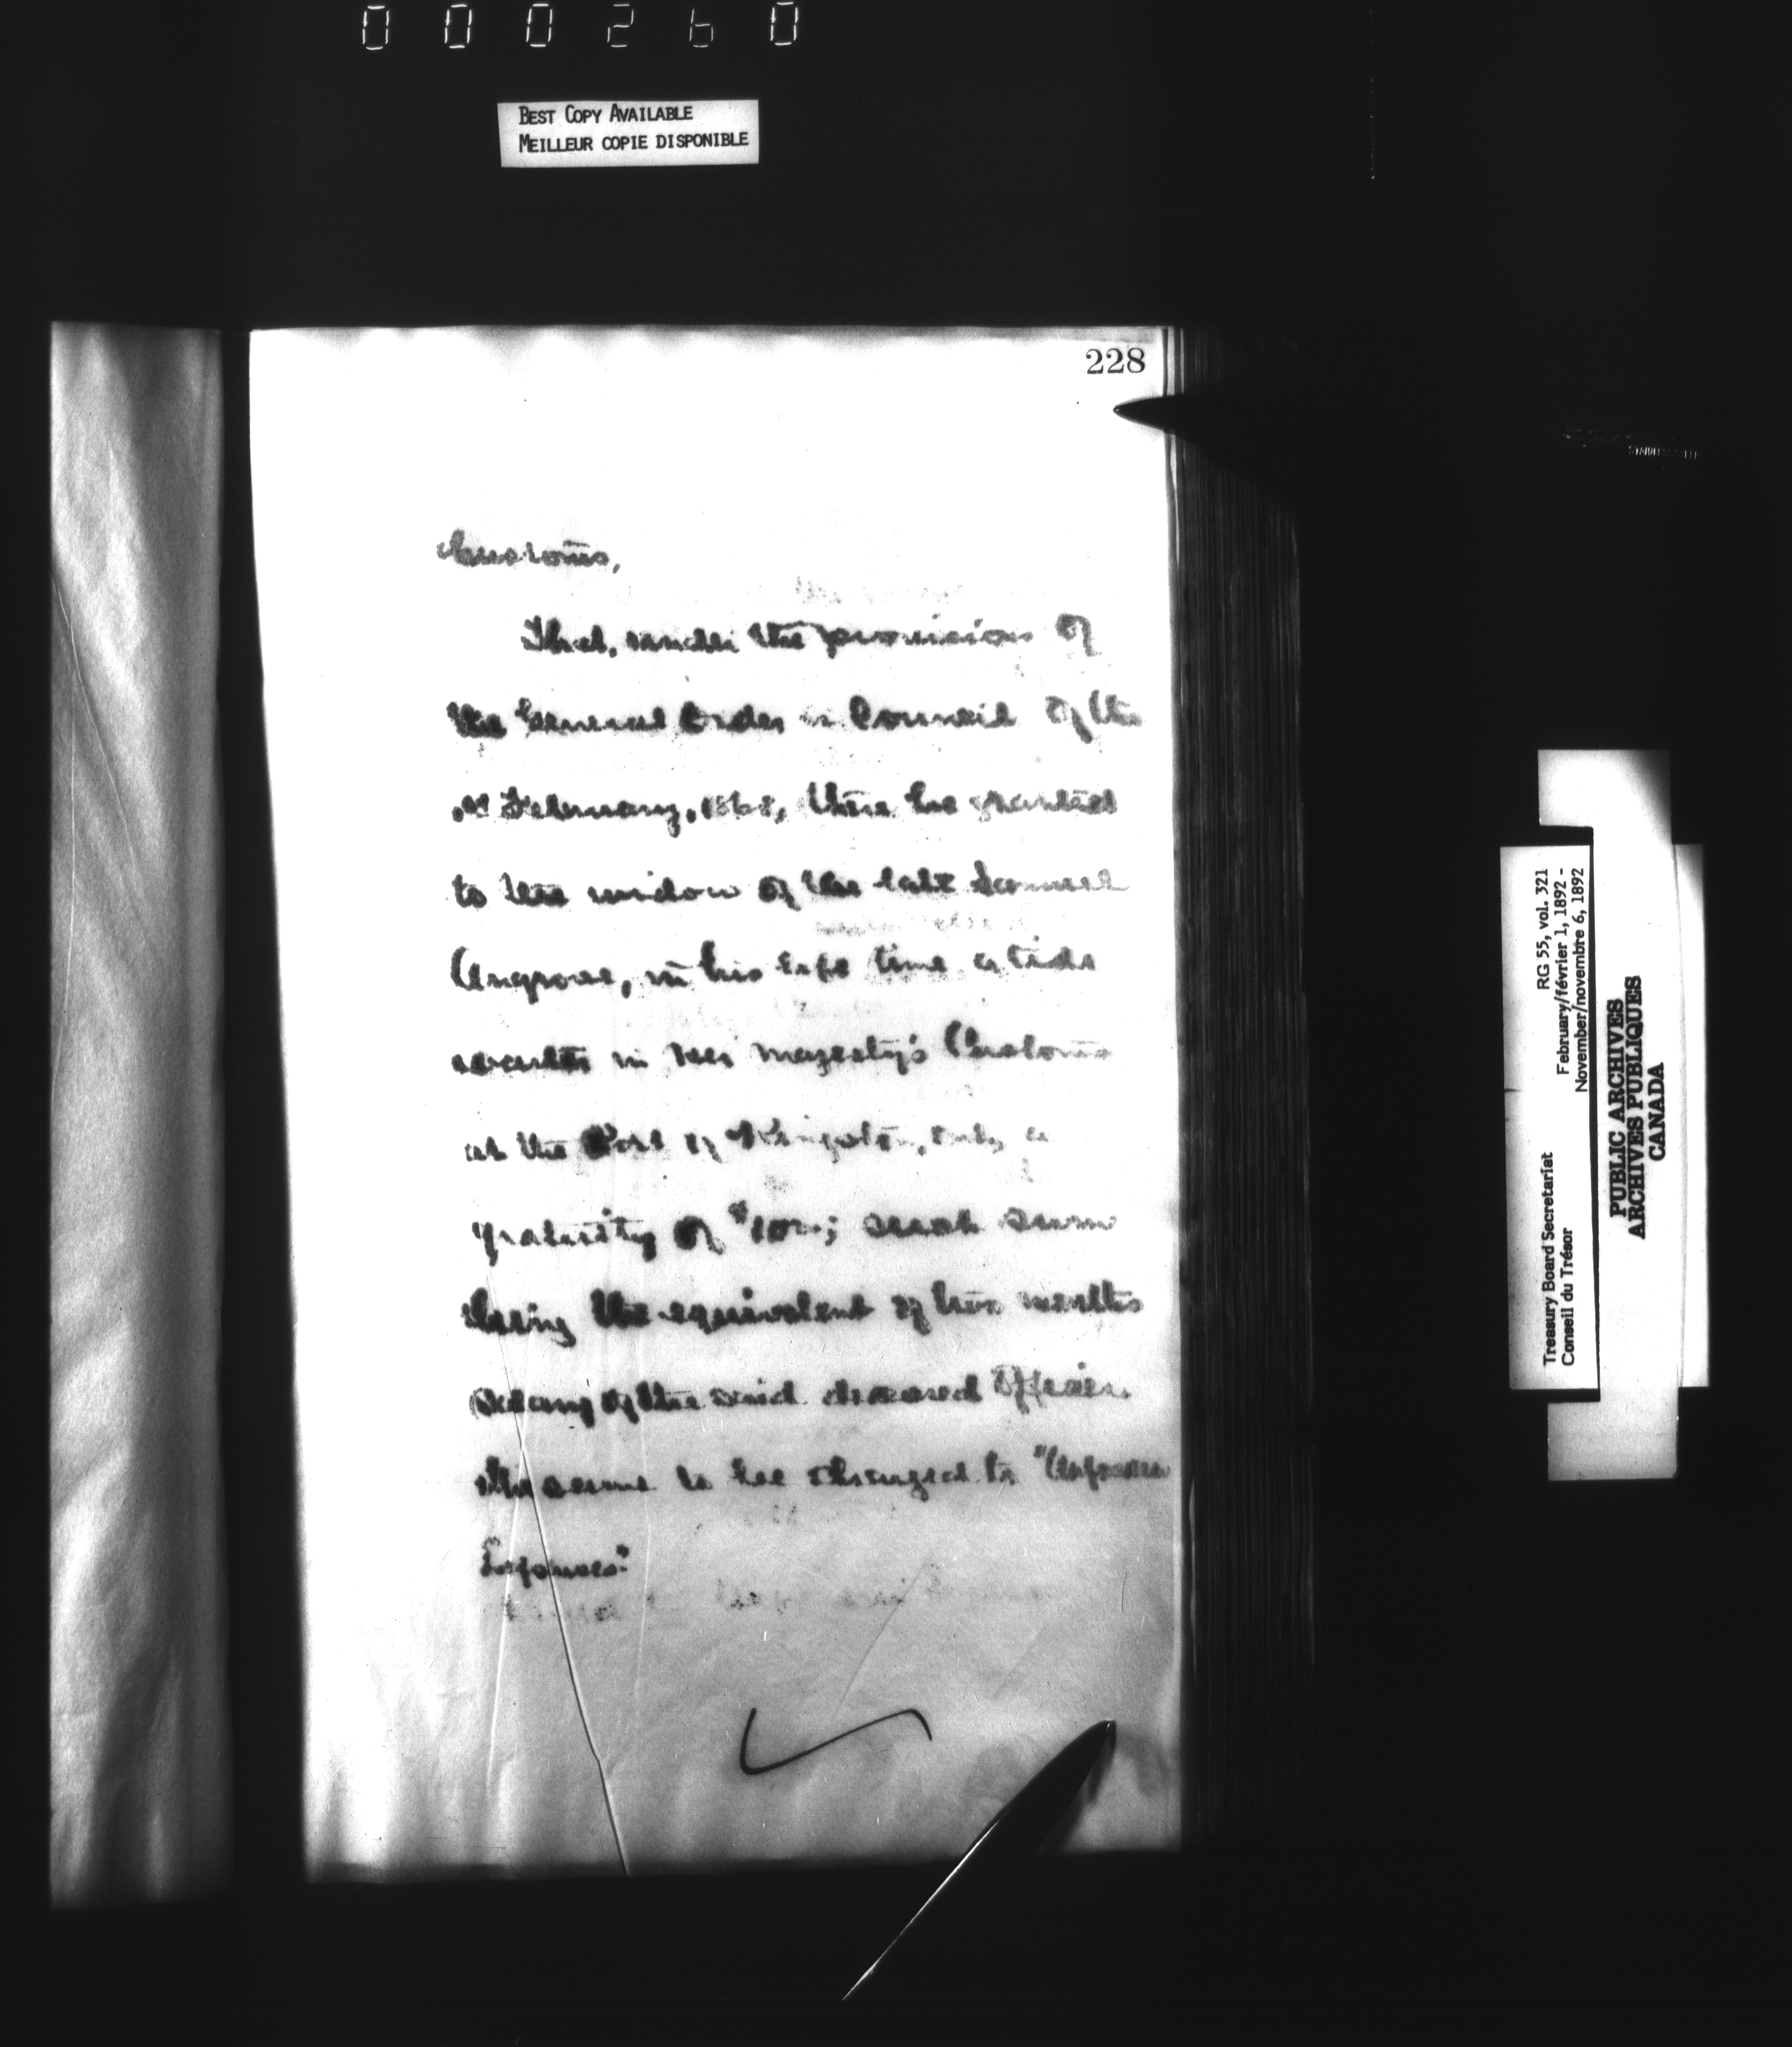 000260
BEST COPY AVAILABLE
MEILLEUR COPIE DISPONIBLE
228
Customs,
That, under the provisions of
the General Order in Council of the
February, 1868, there be granted
to the widow of the late Samuel
Angrove, in his life time a tide
waiter in Her Majesty's Customs
at the Port of Kingston, Ont., a
gratuity of $100; such sum
being the equivalent of two months
salary of the said deceased Officer.
The same to be charged to "Unforeseen
Expenses."
Treasury Board Secretariat RG 55, vol. 321
Conseil du Trésor February/février 1, 1892 -
November/novembre 6, 1892
PUBLIC ARCHIVES
ARCHIVES PUBLIQUES
CANADA